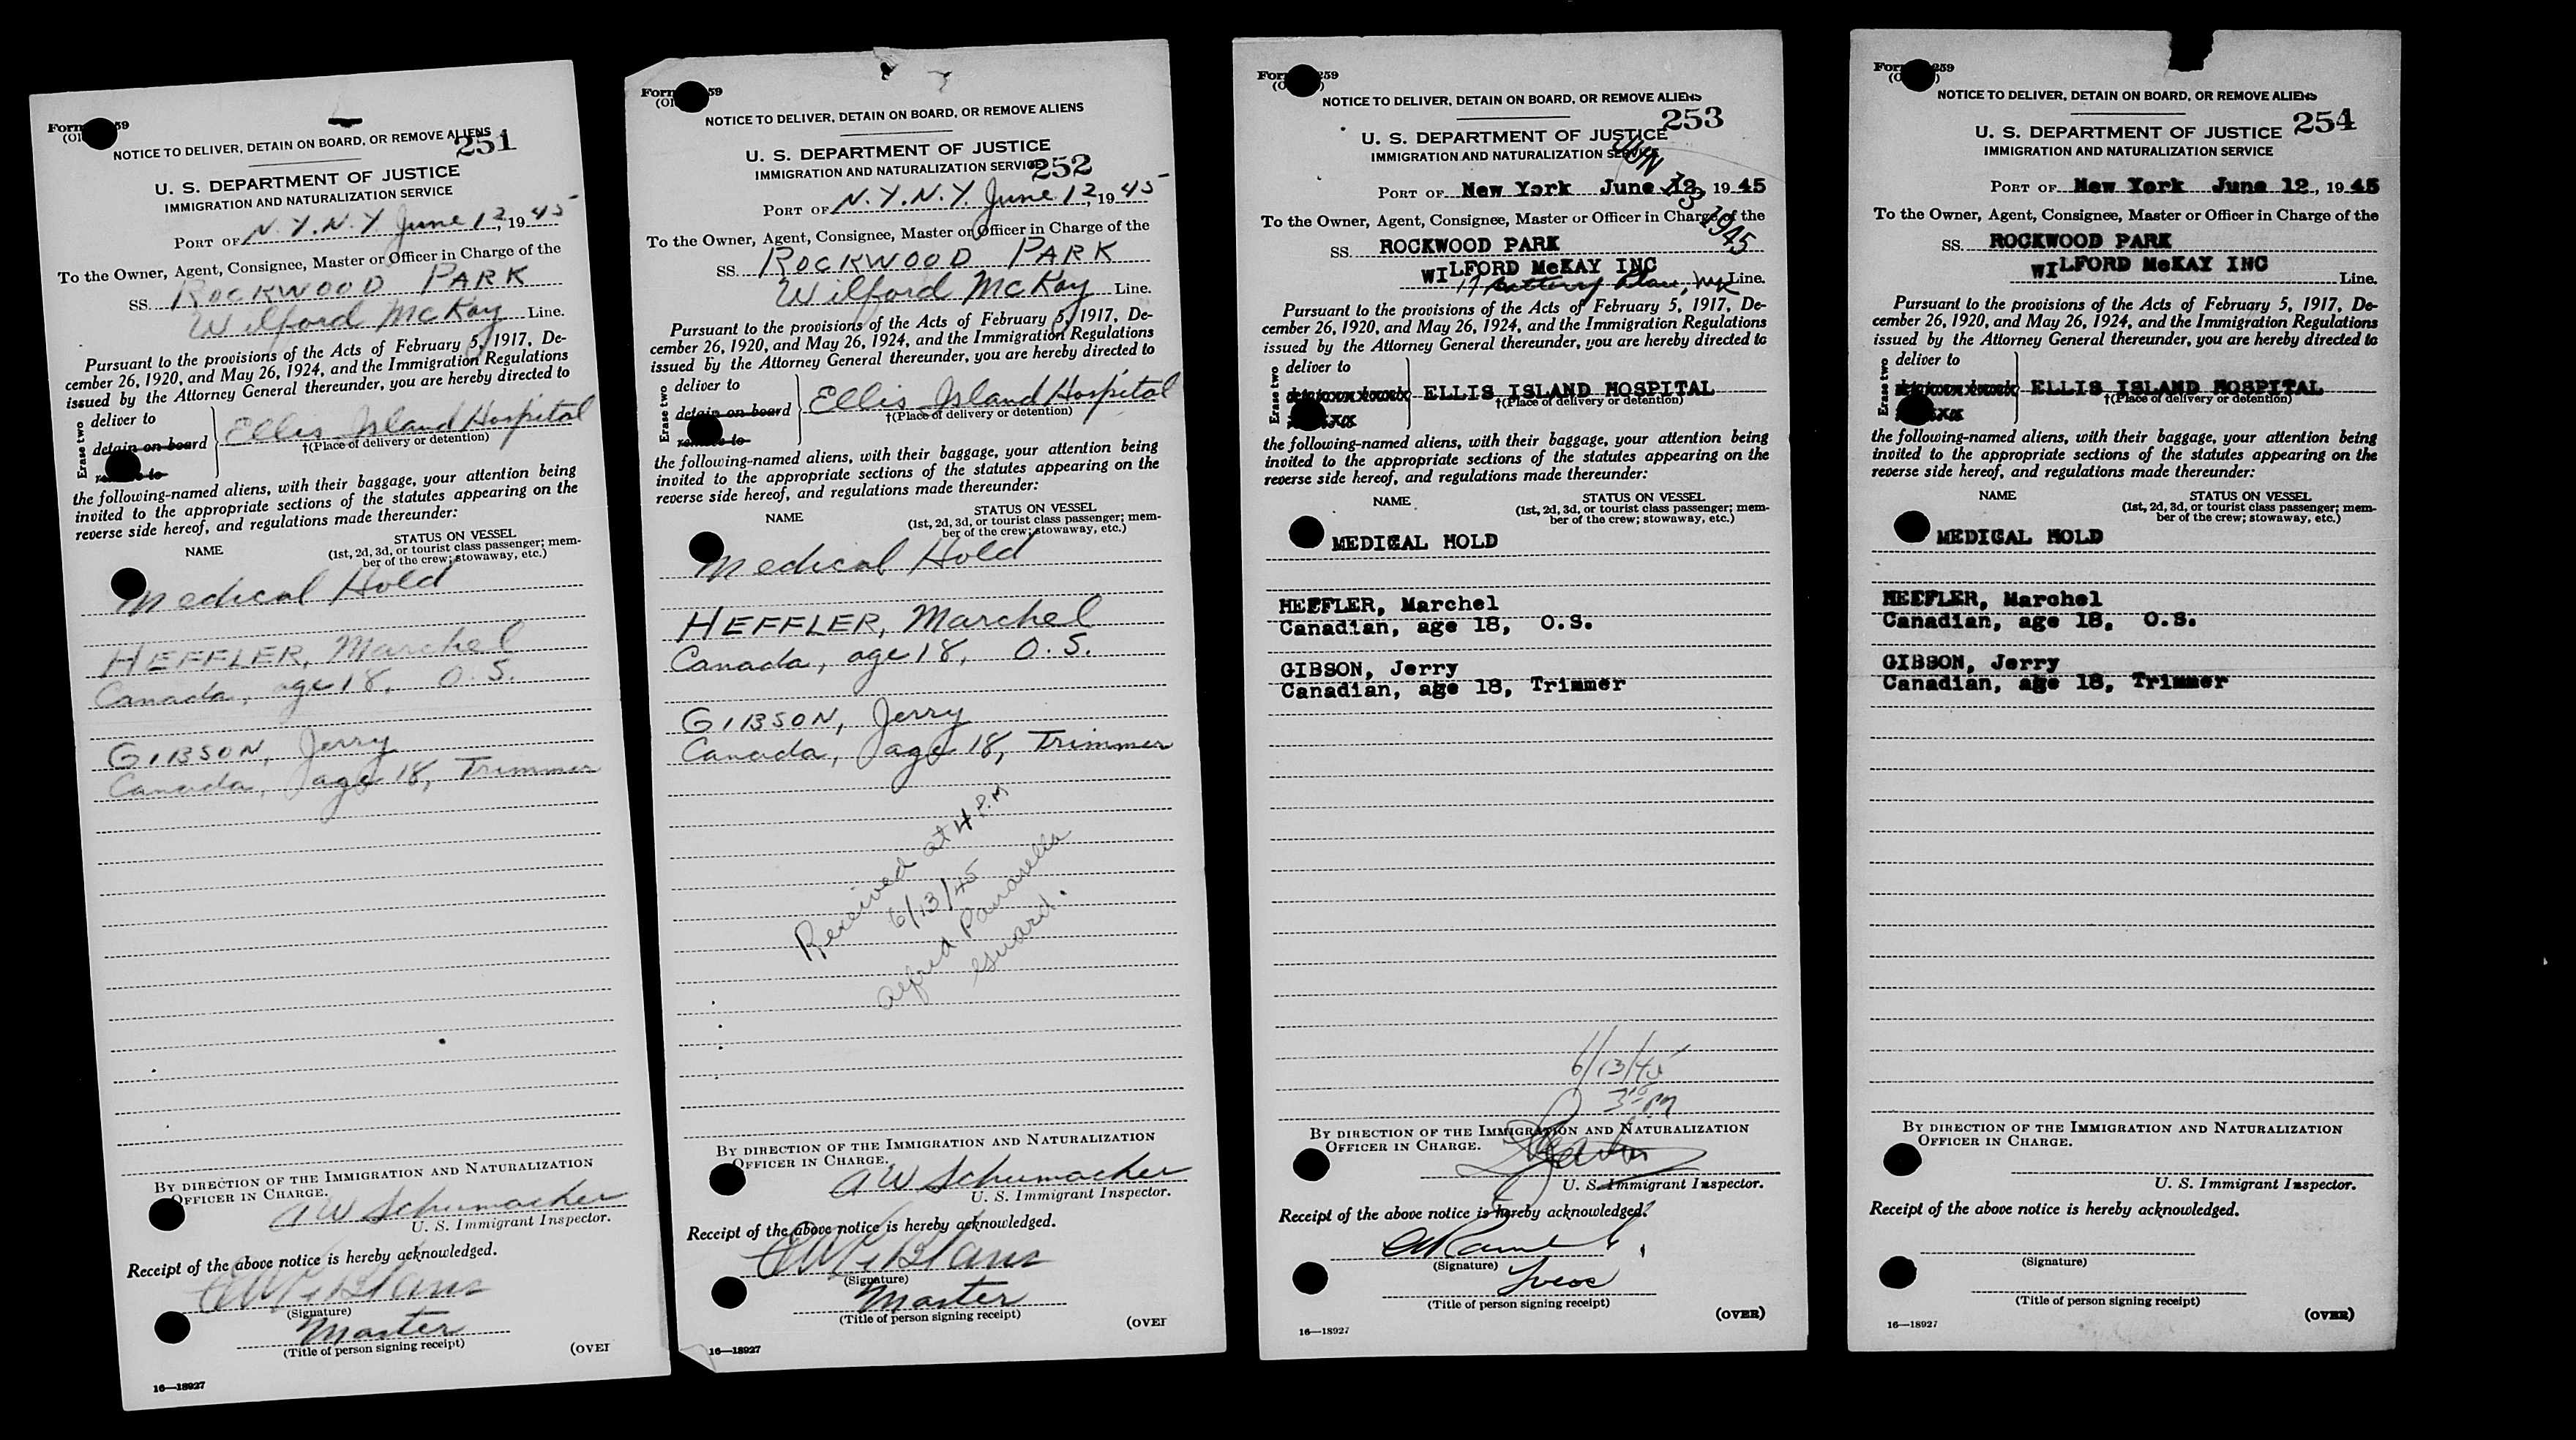 Form 59
(Ol
NOTICE TO DELIVER, DETAIN ON BOARD, OR REMOVE ALIENS
251
U. S. DEPARTMENT OF JUSTICE
IMMIGRATION AND NATURALIZATION SERVICE
PORT OF N.Y.N.Y. June 12, 1945
To the Owner, Agent, Consignee, Master or Officer in Charge of the
SS. ROCKWOOD PARK
Wilford McKay Line.
Pursuant to the provisions of the Acts of February 5, 1917, De-
cember 26, 1920, and May 26, 1924, and the Immigration Regulations
issued by the Attorney General thereunder, you are hereby directed to
Erase two
deliver to
detain on board
Ellis Island Hospital
†(Place of delivery or detention)
the following-named aliens, with their baggage, your attention being
invited to the appropriate sections of the statutes appearing on the
reverse side hereof, and regulations made thereunder:
NAME
STATUS ON VESSEL
(1st, 2d, 3d, or tourist class passenger; mem-
ber of the crew; stowaway, etc.)
Medical Hold
HEFFLER, Marchel
Canada, age 18, O.S.
GIBSON, Jerry
Canada, age 18, Trimmer
BY DIRECTION OF THE IMMIGRATION AND NATURALIZATION
OFFICER IN CHARGE.
A W Schumacher
U. S. Immigrant Inspector.
Receipt of the above notice is hereby acknowledged.
(Signature)
Master
(Title of person signing receipt)
(OVER
16—18927
Form 59
(Ol
NOTICE TO DELIVER, DETAIN ON BOARD, OR REMOVE ALIENS
U. S. DEPARTMENT OF JUSTICE
IMMIGRATION AND NATURALIZATION SERVICE
252
PORT OF N.Y.N.Y. June 12, 1945
To the Owner, Agent, Consignee, Master or Officer in Charge of the
SS. ROCKWOOD PARK
Wilford McKay Line.
Pursuant to the provisions of the Acts of February 5, 1917, De-
cember 26, 1920, and May 26, 1924, and the Immigration Regulations
issued by the Attorney General thereunder, you are hereby directed to
Erase two
deliver to
detain on board
Ellis Island Hospital
†(Place of delivery or detention)
the following-named aliens, with their baggage, your attention being
invited to the appropriate sections of the statutes appearing on the
reverse side hereof, and regulations made thereunder:
NAME
STATUS ON VESSEL
(1st, 2d, 3d, or tourist class passenger; mem-
ber of the crew; stowaway, etc.)
Medical Hold
HEFFLER, Marchel
Canada, age 18, O.S.
GIBSON, Jerry
Canada, age 18, Trimmer
Received at 4 P.M
6/13/45
Alfred
Guard.
BY DIRECTION OF THE IMMIGRATION AND NATURALIZATION
OFFICER IN CHARGE.
A W Schumacher
U. S. Immigrant Inspector.
Receipt of the above notice is hereby acknowledged.
(Signature)
Master
(Title of person signing receipt)
(OVER
16—18927
Form 259
(O )
NOTICE TO DELIVER, DETAIN ON BOARD, OR REMOVE ALIENS
253
U. S. DEPARTMENT OF JUSTICE
IMMIGRATION AND NATURALIZATION SERVICE
JUN 13 1945
PORT OF New York June 12, 1945
To the Owner, Agent, Consignee, Master or Officer in Charge of the
SS. ROCKWOOD PARK
WILFORD McKAY INC
17 Battery Place, NYC Line.
Pursuant to the provisions of the Acts of February 5, 1917, De-
cember 26, 1920, and May 26, 1924, and the Immigration Regulations
issued by the Attorney General thereunder, you are hereby directed to
Erase two
deliver to
ELLIS ISLAND HOSPITAL
†(Place of delivery or detention)
the following-named aliens, with their baggage, your attention being
invited to the appropriate sections of the statutes appearing on the
reverse side hereof, and regulations made thereunder:
NAME
STATUS ON VESSEL
(1st, 2d, 3d, or tourist class passenger; mem-
ber of the crew; stowaway, etc.)
MEDICAL HOLD
HEFFLER, Marchel
Canadian, age 18, O.S.
GIBSON, Jerry
Canadian, age 18, Trimmer
6/13/45
BY DIRECTION OF THE IMMIGRATION AND NATURALIZATION
OFFICER IN CHARGE.
U. S. Immigrant Inspector.
Receipt of the above notice is hereby acknowledged.
(Signature)
(Title of person signing receipt)
(OVER)
16—18927
Form 259
(O )
NOTICE TO DELIVER, DETAIN ON BOARD, OR REMOVE ALIENS
U. S. DEPARTMENT OF JUSTICE 254
IMMIGRATION AND NATURALIZATION SERVICE
PORT OF New York June 12, 1945
To the Owner, Agent, Consignee, Master or Officer in Charge of the
SS. ROCKWOOD PARK
WILFORD McKAY INC
Line.
Pursuant to the provisions of the Acts of February 5, 1917, De-
cember 26, 1920, and May 26, 1924, and the Immigration Regulations
issued by the Attorney General thereunder, you are hereby directed to
Erase two
deliver to
ELLIS ISLAND HOSPITAL
†(Place of delivery or detention)
the following-named aliens, with their baggage, your attention being
invited to the appropriate sections of the statutes appearing on the
reverse side hereof, and regulations made thereunder:
NAME
STATUS ON VESSEL
(1st, 2d, 3d, or tourist class passenger; mem-
ber of the crew; stowaway, etc.)
MEDICAL HOLD
HEFFLER, Marchel
Canadian, age 18, O.S.
GIBSON, Jerry
Canadian, age 18, Trimmer
BY DIRECTION OF THE IMMIGRATION AND NATURALIZATION
OFFICER IN CHARGE.
U. S. Immigrant Inspector.
Receipt of the above notice is hereby acknowledged.
(Signature)
(Title of person signing receipt)
(OVER)
16—18927